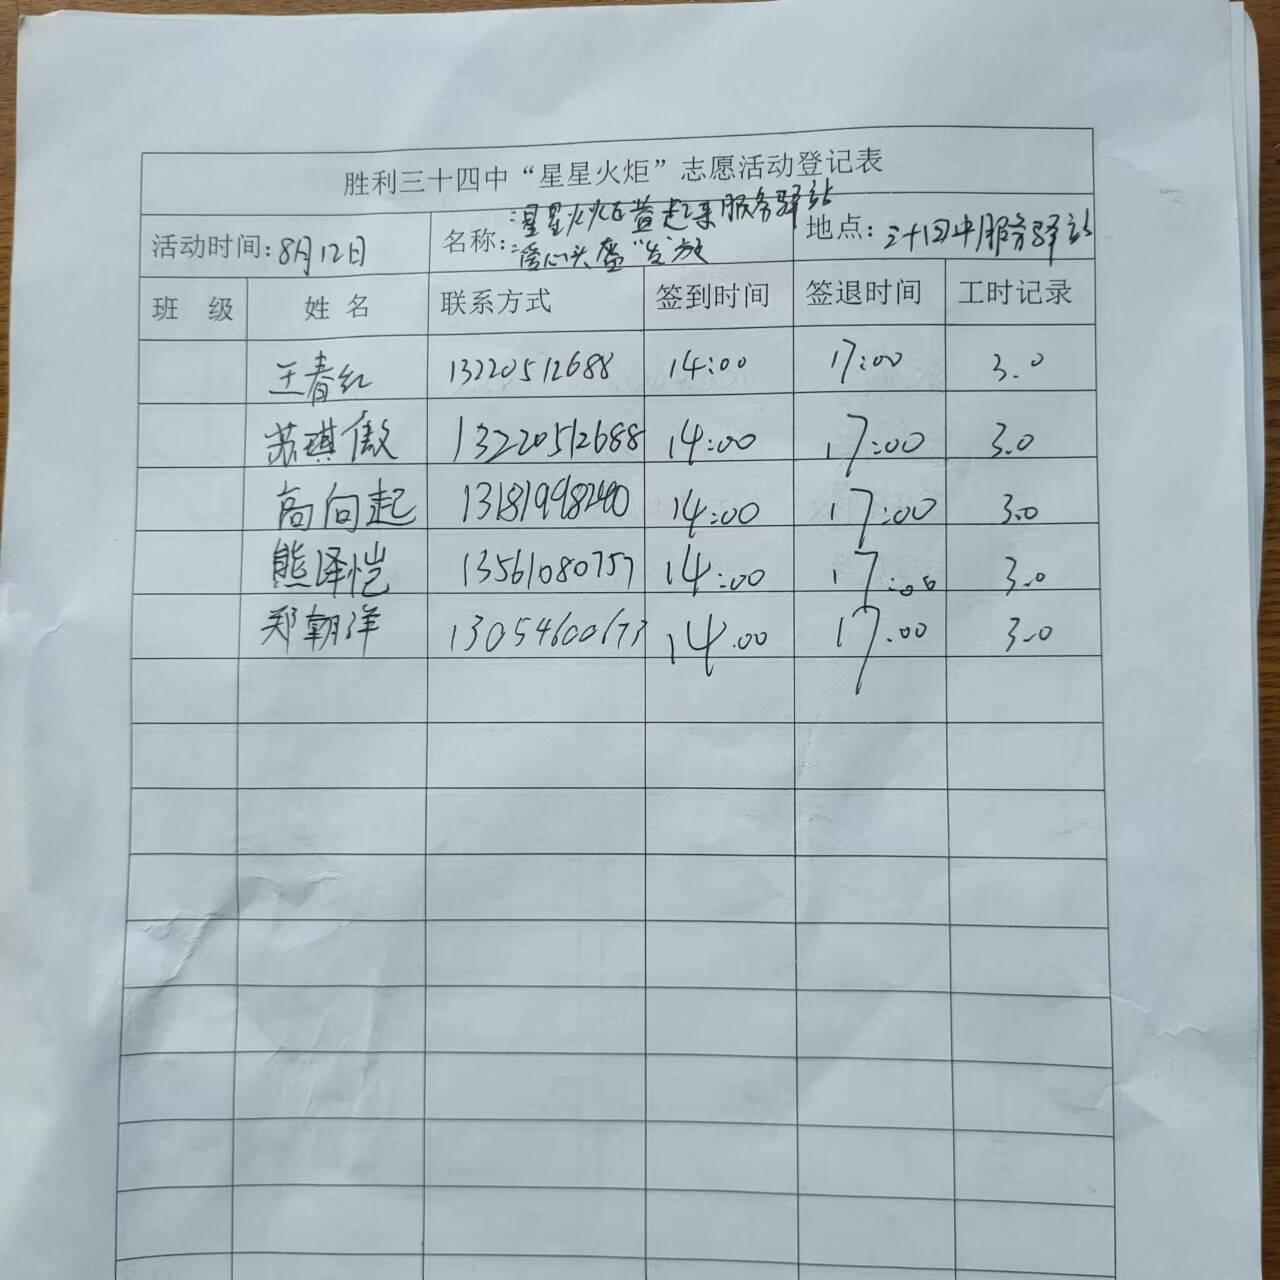 胜利三十四中“星星火炬”志愿活动登记表
活动时间:8月12日 名称:“星星火炬益起来服务驿站 地点:三十四中服务驿站
“爱心头盔”发放
班 级 姓 名 联系方式 签到时间 签退时间 工时记录
王春红 13220512688 14:00 17:00 3.0
苏琪傲 13220512688 14:00 17:00 3.0
高向起 14:00 17:00 3.0
熊泽恺 13561080757 14:00 17:00 3.0
郑朝洋 13054600673 14.00 17.00 3.0